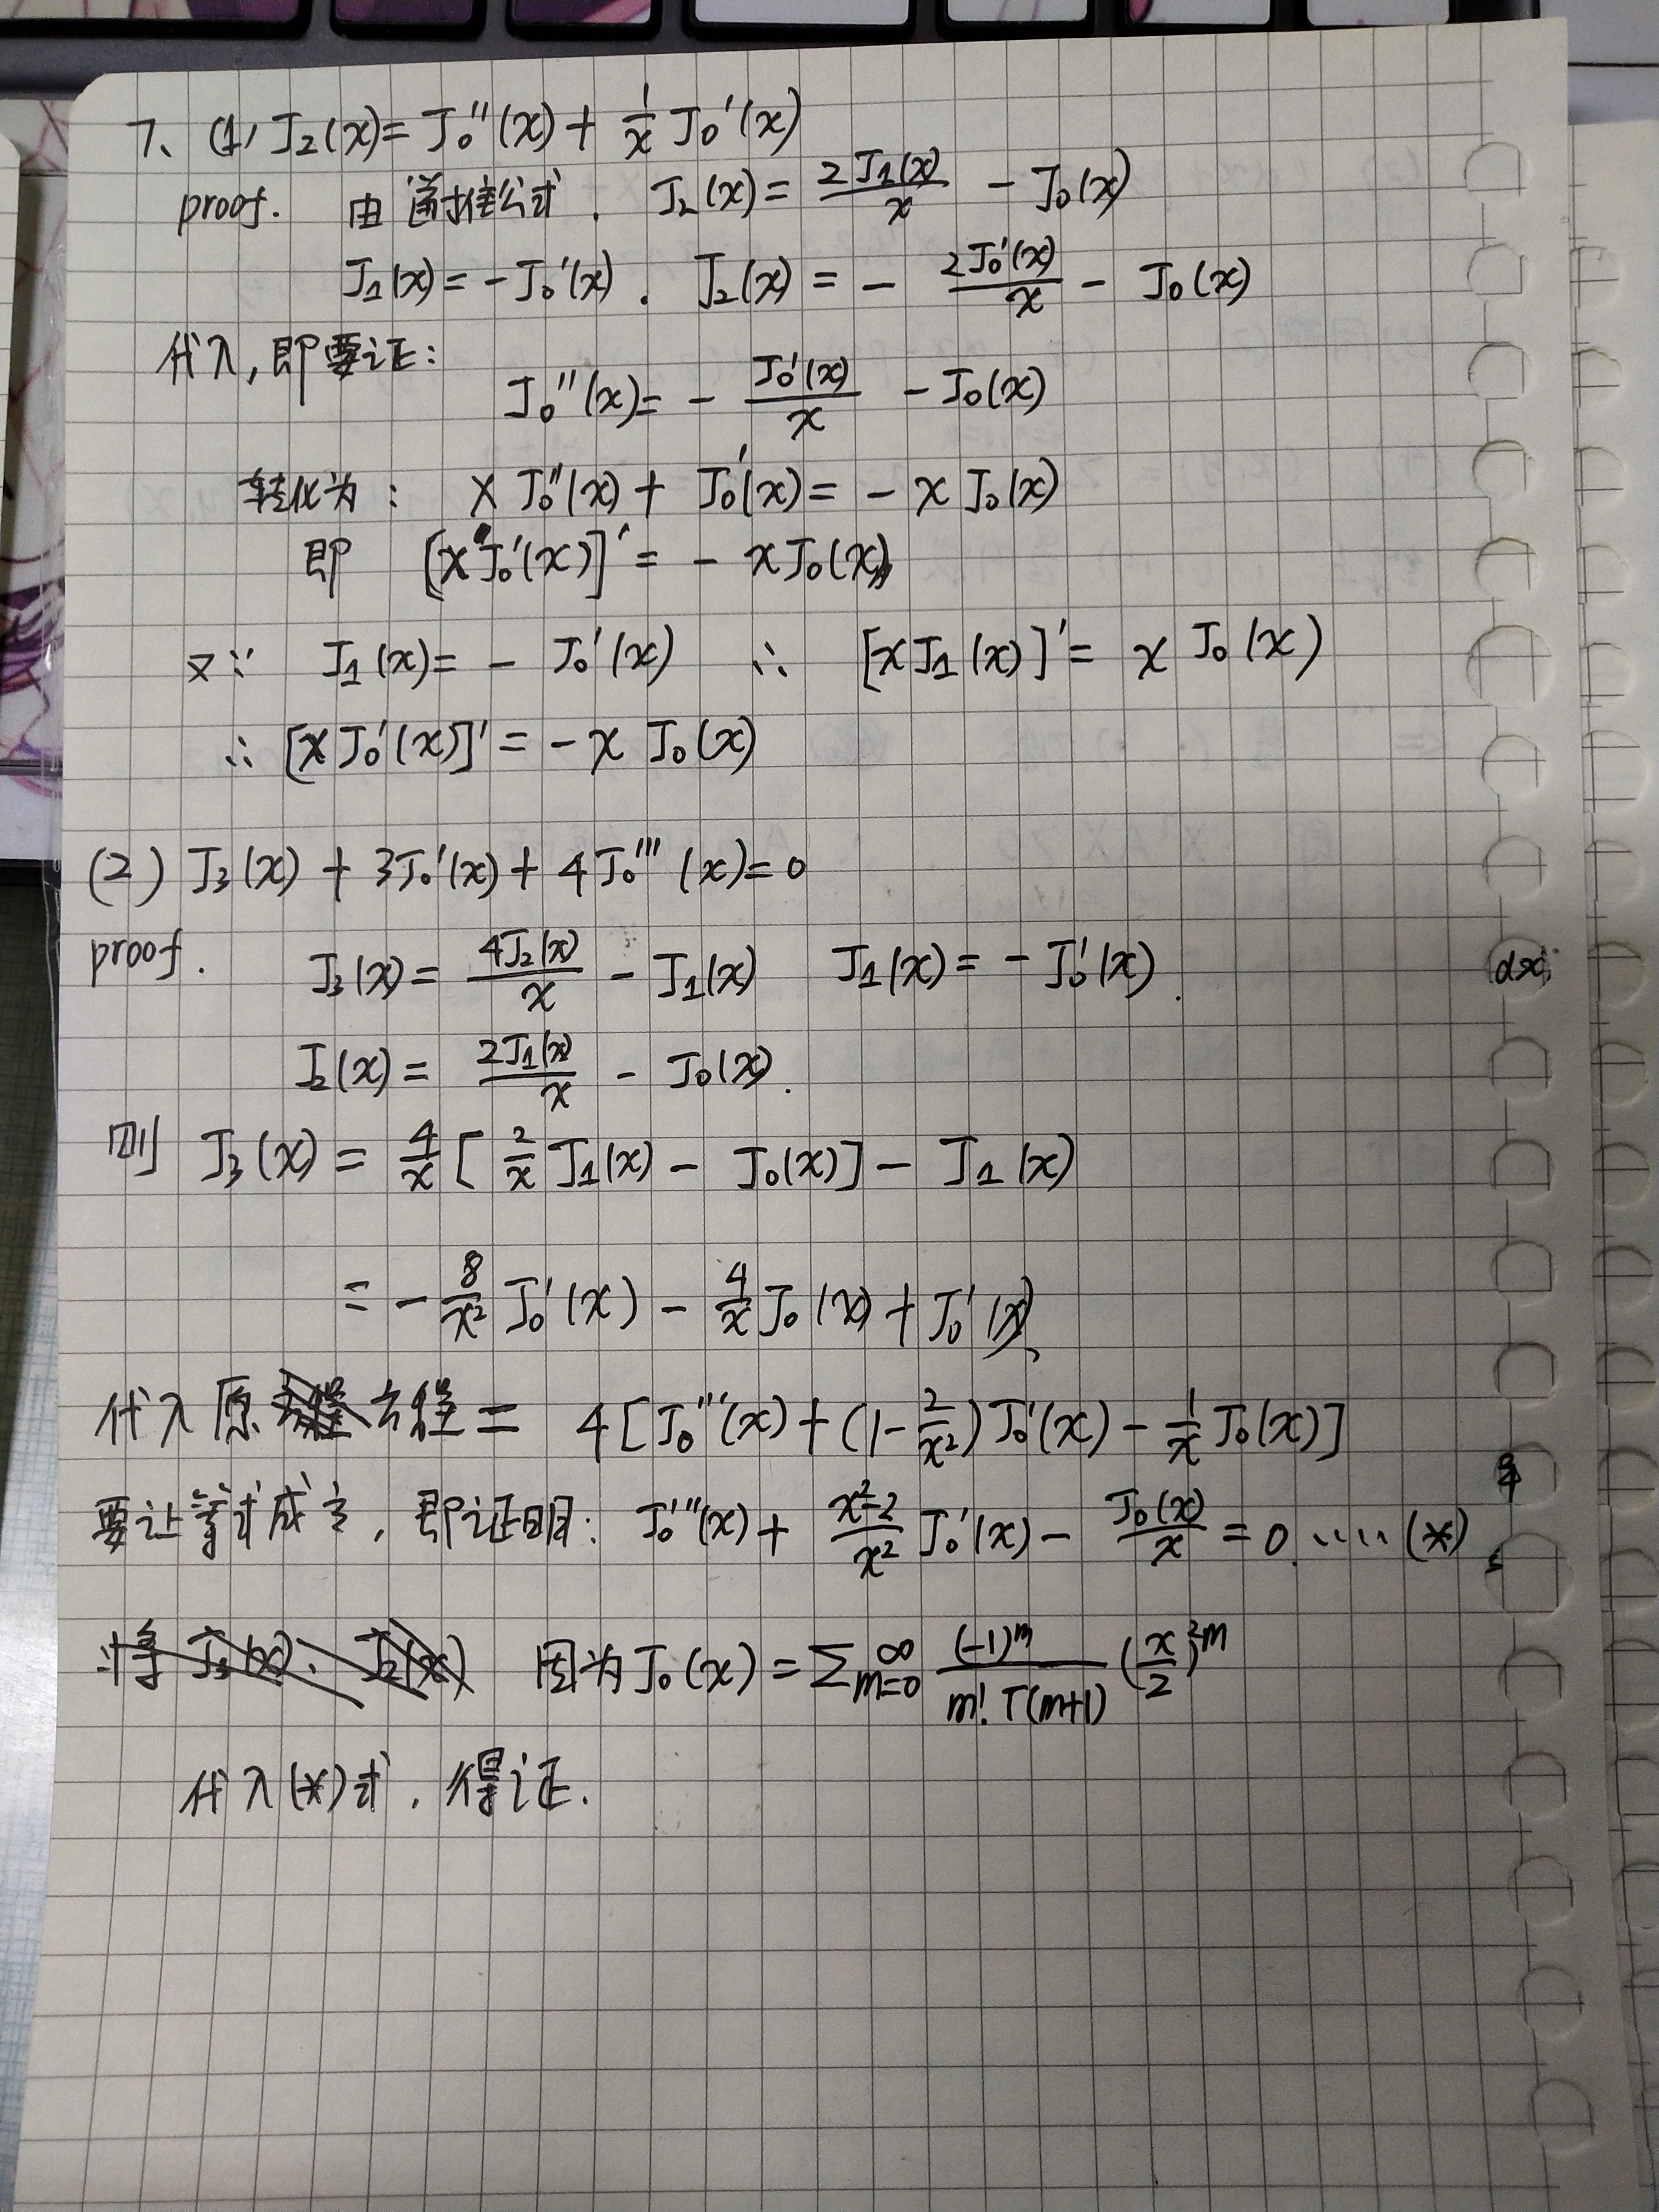 7、(1) J₂(x) = J₀''(x) + 1/x J₀'(x)
proof. 由递推公式. J₂(x) = 2J₁(x)/x - J₀(x)
J₁(x) = -J₀'(x). J₂(x) = - 2J₀'(x)/x - J₀(x)
代入,即要证:
J₀''(x) = - J₀'(x)/x - J₀(x)
转化为: x J₀''(x) + J₀'(x) = - x J₀(x)
即 [x J₀'(x)]' = - x J₀(x)
又∵ J₁(x) = - J₀'(x) ∴ [x J₁(x)]' = x J₀(x)
∴ [x J₀'(x)]' = - x J₀(x)
(2) J₃(x) + 3J₀'(x) + 4J₀'''(x) = 0
proof. J₃(x) = 4J₂(x)/x - J₁(x) J₁(x) = - J₀'(x).
J₂(x) = 2J₁(x)/x - J₀(x).
则 J₃(x) = 4/x [ 2/x J₁(x) - J₀(x)] - J₁(x)
= - 8/x² J₀'(x) - 4/x J₀(x) + J₀'(x)、
代入原方程 = 4[J₀'''(x) + (1 - 2/x²) J₀'(x) - 1/x J₀(x)]
要让等式成立, 即证明: J₀'''(x) + x²-2/x² J₀'(x) - J₀(x)/x = 0 ..... (*)
因为 J₀(x) = ∑_{m=0}^∞ (-1)^m/m! Γ(m+1) (x/2)^{2m}
代入(*)式, 得证.
dx